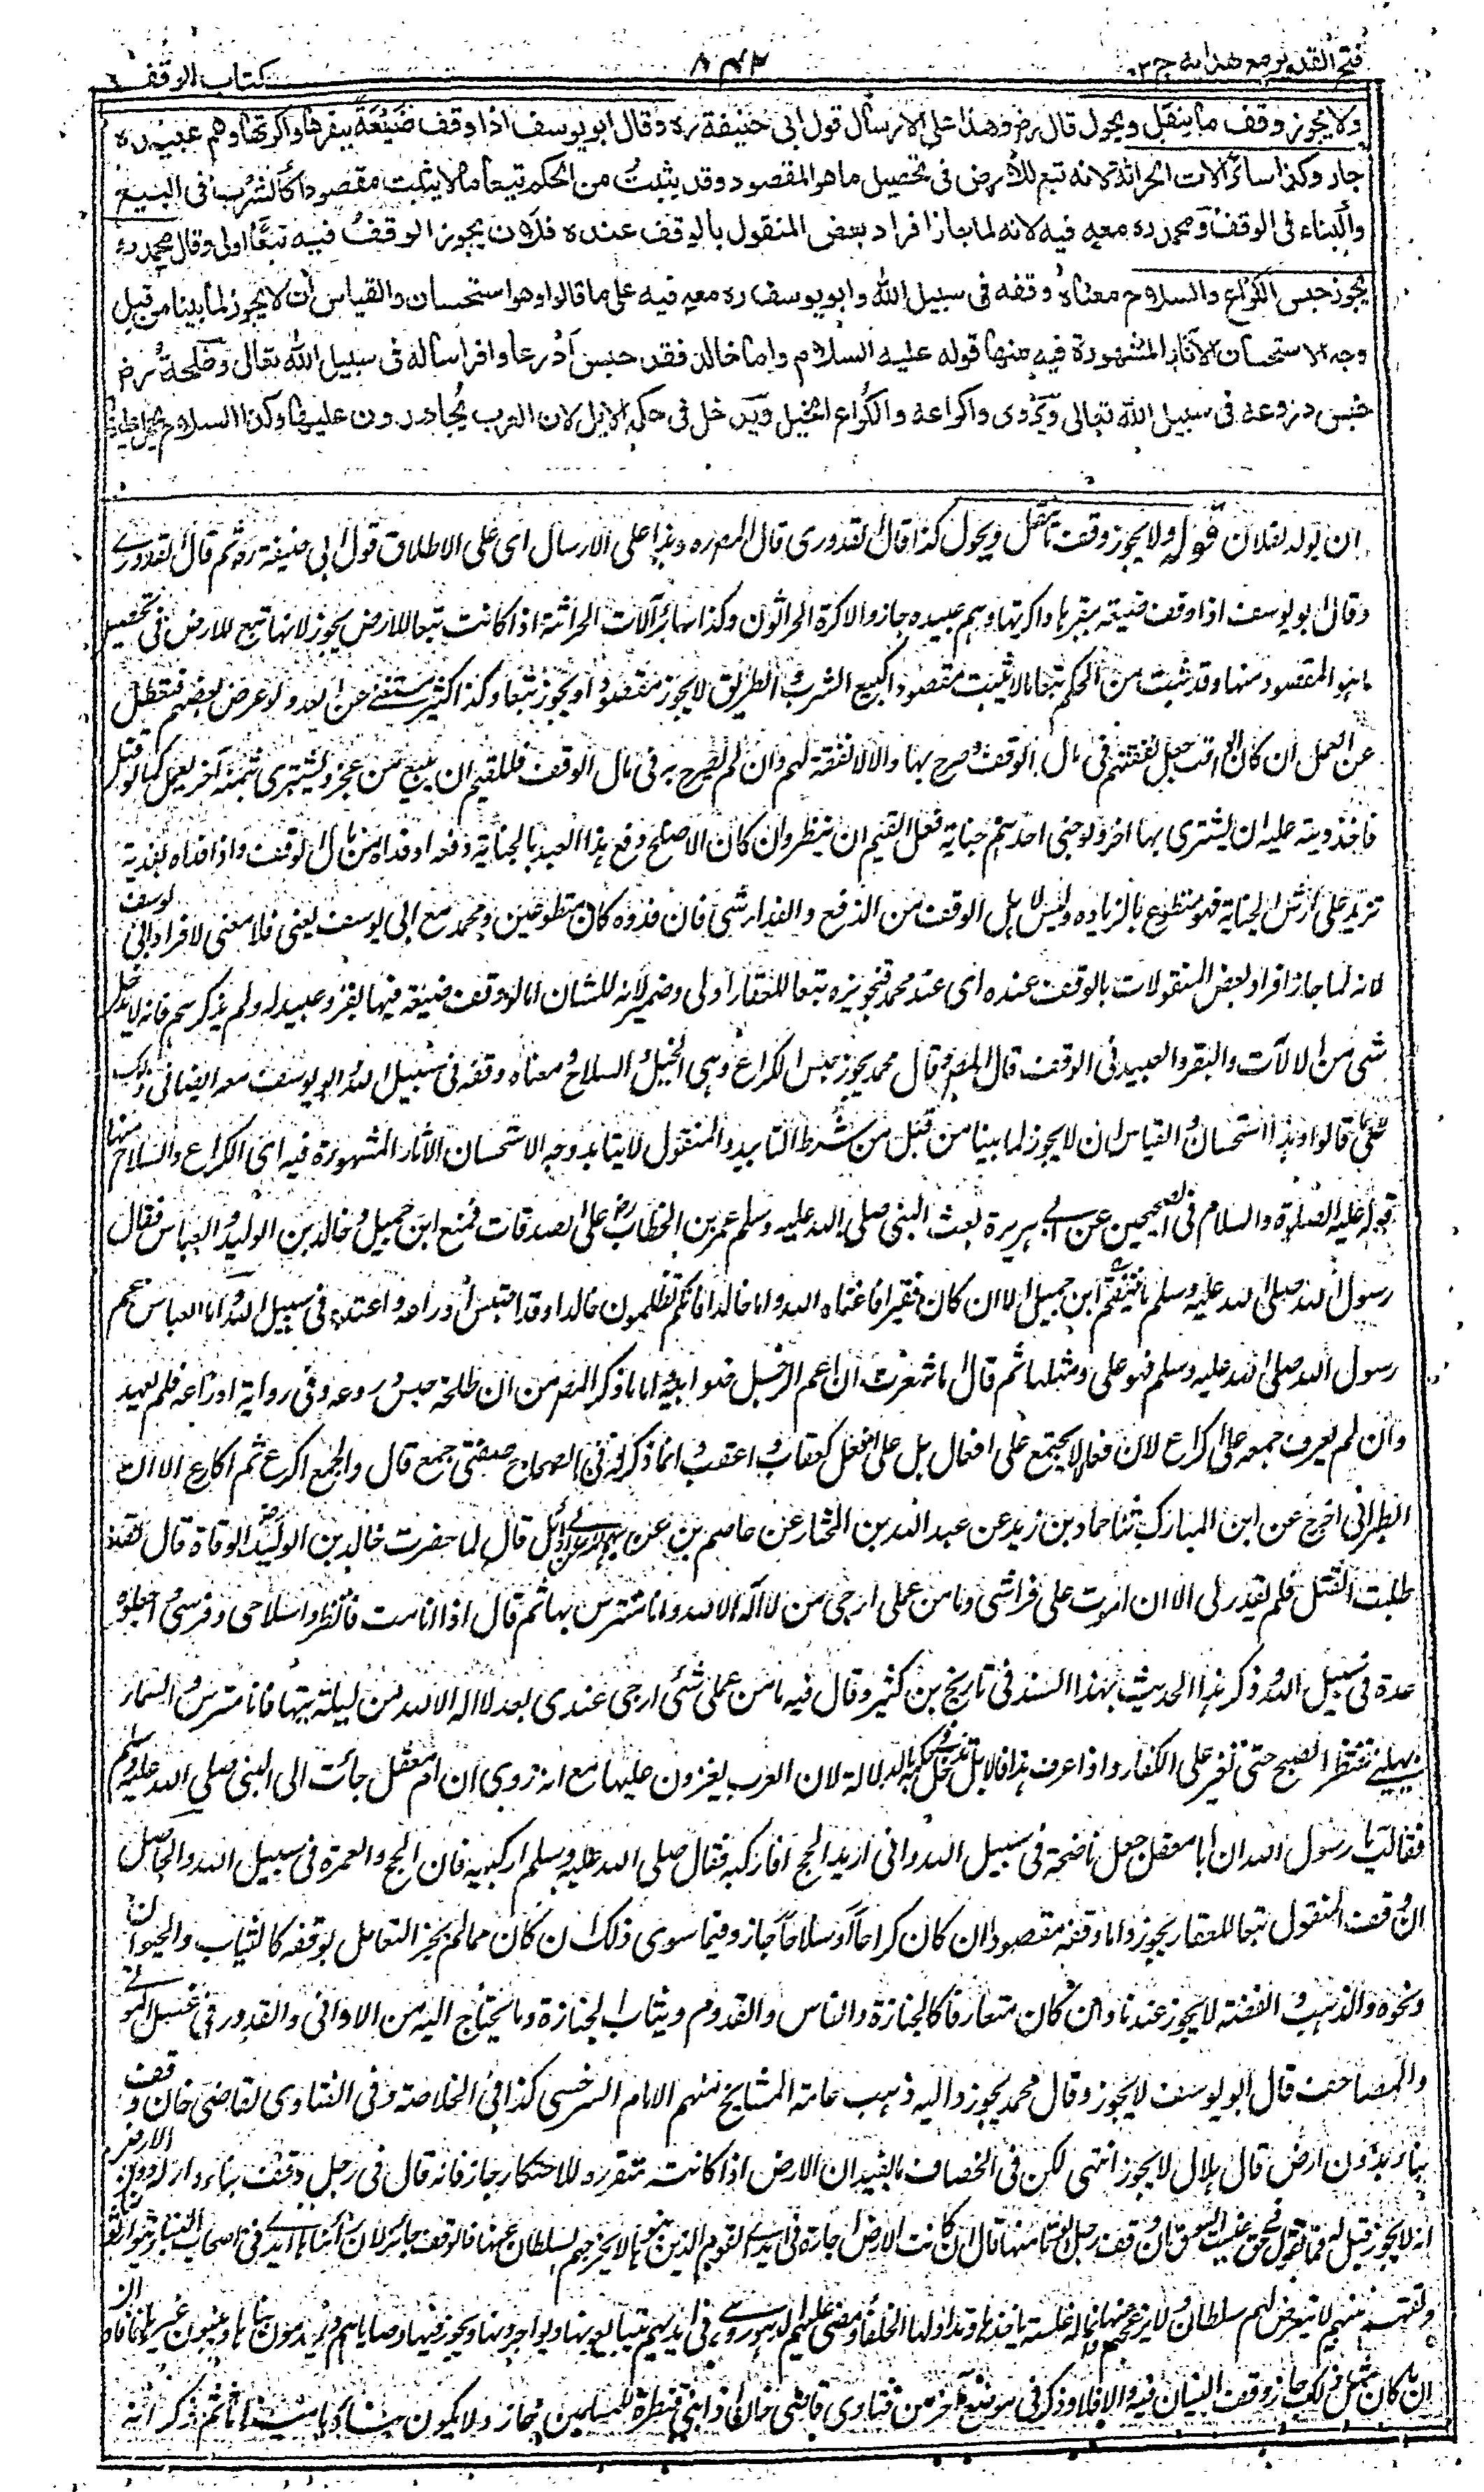 فتح القدير مع هدايه ج ٣
٨٤٣
كتاب الوقف
ولا يجوز وقف ما ينقل ويحول قال رض وهذا على الارسال قول ابى حنيفة ره وقال ابو يوسف اذا وقف ضيعة ببقرها واكرتها وهم عبيده
جاز وكذا سائر الات الحراثة لانه تبع للارض فى تحصيل ما هو المقصود وقد يثبت من الحكم تبعا ما لا يثبت مقصودا كالشرب فى البيع
والبناء فى الوقف و محمد ره معه فيه لانه لما جاز افراد بعض المنقول بالوقف عنده فلان يجوز الوقف فيه تبعا اولى وقال محمد ره
يجوز حبس الكراع والسلاح معناه وقفه فى سبيل الله وابو يوسف ره معه فيه على ما قالوا وهو استحسان والقياس ان لا يجوز لما بينا من قبل
وجه الاستحسان الآثار المشهورة فيه منها قوله عليه السلام واما خالد فقد حبس ادرعا وافراسا له فى سبيل الله تعالى وطلحة رض
حبس دروعه فى سبيل الله تعالى ويروى واكراعه والكراع الخيل ويدخل فى حكمه الابل لان العرب يجاهدون عليها وكذا السلاح يحمل عليها
ان تولد لفلان قوله ولا يجوز وقف ما ينقل ويحول كذا قال القدورى قال المصره وهذا على الارسال اى على الاطلاق قول ابى حنيفة ره ثم قال القدورى
وقال ابو يوسف اذا وقف ضيعة ببقرها واكرتها وهم عبيده جاز والاكرة الحراثون وكذا سائر آلات الحراثة اذا كانت تبعا للارض يجوز لانها تبع للارض فى تحصيل
ما هو المقصود منها وقد ثبت من الحكم تبعا ما لا يثبت مقصودا كبيع الشرب و الطريق لا يجوز مقصودا ويجوز تبعا وكذا كثير يستغنى عن العد ولو عرض لبعضهم فتعطل
عن العمل ان كان الواقف جعل نفقتهم فى مال الوقف وصرح بها والا لا نفقة لهم وان لم يصرح به فى مال الوقف فللقيم ان يبيع من عجز ويشترى بثمنه آخر يعمل كما لو قتل
فاخذ ديته عليه ان يشترى بها اخر ولو جنى احدهم جناية فعلى القيم ان ينظر وان كان الاصلح دفع هذا العبد بالجناية دفعه او فداه من مال الوقف واذا فداه بفدية
تزيد على ارش الجناية فهو متطوع بالزيادة وليس لاهل الوقف من الدفع والفداء شئ فان فدوه كان متطوعين ومحمد مع ابى يوسف يعنى فلا معنى لافراد ابى يوسف
لانه لما جاز افراد بعض المنقولات بالوقف عنده اى عند محمد فتجويزه تبعا للعقار اولى وضمير لانه للشان اما لو وقف ضيعة فيها بقر وعبيد له ولم يذكرهم فانه لا يدخل
شئ من الآلات والبقر والعبيد فى الوقف قال المصره وقال محمد يجوز حبس الكراع وهى الخيل و السلاح و معناه وقفه فى سبيل الله وابو يوسف معه ايضا فى ذلك
على ما قالوا وهذا استحسان والقياس ان لا يجوز لما بينا من قبل من شرط التابيد والمنقول لا يتابد وجه الاستحسان الآثار المشهورة فيه اى الكراع والسلاح منها
قوله عليه الصلوة والسلام فى الصحيحين عن ابى هريرة بعث النبى صلى الله عليه وسلم عمر بن الخطاب رض على الصدقات فمنع ابن جميل وخالد بن الوليد والعباس فقال
رسول الله صلى الله عليه وسلم ما ينقم ابن جميل الا ان كان فقيرا فاغناه الله واما خالد فانكم تظلمون خالدا وقد احتبس ادراعه واعتده فى سبيل الله واما العباس عم
رسول الله صلى الله عليه وسلم فهو على ومثلها ثم قال اما شعرت ان عم الرجل صنو ابيه اما ما ذكر المصره من ان طلحة حبس دروعه وفى رواية اكراعه فلم يعهد
وان لم يعرف جمعه على اكراع لان فعالا لا يجمع على افعال بل على افعل كعقاب واعقب وانما ذكره فى الصحاح صيغتى جمع قال والجمع اكرع ثم اكارع الا ان
الطبرانى اخرج عن ابن المبارك ثنا حماد بن زيد عن عبد الله بن المختار عن عاصم بن عن ابى وائل قال لما حضرت خالد بن الوليد رض الوفاة قال لقد
طلبت القتل فلم يقدر لى الا ان اموت على فراشى وما من عملى ارجى من لا اله الا الله وانا متترس بها ثم قال اذا انا مت فانظروا سلاحى وفرسى و اجعلوه
عدة فى سبيل الله وذكر هذا الحديث بهذا السند فى تاريخ بن كثير وقال فيه ما من عملى شئ ارجى عندى بعد لا اله الا الله من ليلة بتها فانا متترس و السماء
تهلنى ننتظر الصبح حتى نغير على الكفار واذا عرف هذا فالابل تدخل فى حكمه بالدلالة لان العرب يغزون عليها مع انه روى ان ام معقل جاءت الى النبى صلى الله عليه وسلم
فقالت يا رسول الله ان ابا معقل جعل ناضحه فى سبيل الله وانى اريد الحج افاركبه فقال صلى الله عليه وسلم اركبيه فان الحج والعمرة فى سبيل الله والحاصل
ان وقف المنقول تبعا للعقار يجوز واما وقفه مقصودا ان كان كراعا او سلاحا جاز وفيما سوى ذلك ان كان مما لم يجز التعامل بوقفه كالثياب والحيوان
ونحوه والذهب و الفضة لا يجوز عندنا وان كان متعارفا كالجنازة والفاس والقدوم وثياب الجنازة وما يحتاج اليه من الاوانى والقدور فى غسل الموتى
والمصاحف قال ابو يوسف لا يجوز وقال محمد يجوز واليه ذهب عامة المشايخ منهم الامام السرخسى كذا فى الخلاصة وفى الفتاوى لقاضى خان وقف
بناء بدون ارض قال هلال لا يجوز انتهى لكن فى الخصاف ما يفيد ان الارض اذا كانت متقررة للاحتكار جاز فانه قال فى رجل وقف بناء دار له دون الارض
انه لا يجوز قيل له فما تقول فى حق ان وقف رجل قال ان كانت الارض اجارة فى ايدى القوم الذين بنوها لا يخرجهم السلطان عنها فالوقف جائز لان فى ايدى اصحاب البناء
منهم لا يتعرض لهم سلطان و لا يزعجهم عنها وانما له غلة ياخذها وتداولها الخلفاء ومضى عليها الدهور وهى فى ايديهم يتبايعونها ويواجرونها ويجوز فيها وصاياهم ويهدمون بناءها ويبنون غيره
ان كان مثل ذلك جاز وقف البنيان فيه والا فلا وذكر فى موضع آخر من فتاوى قاضى خان اذا بنى قنطرة للمسلمين جاز ولا يكون بناؤها ميراثا ثم ذكر انه